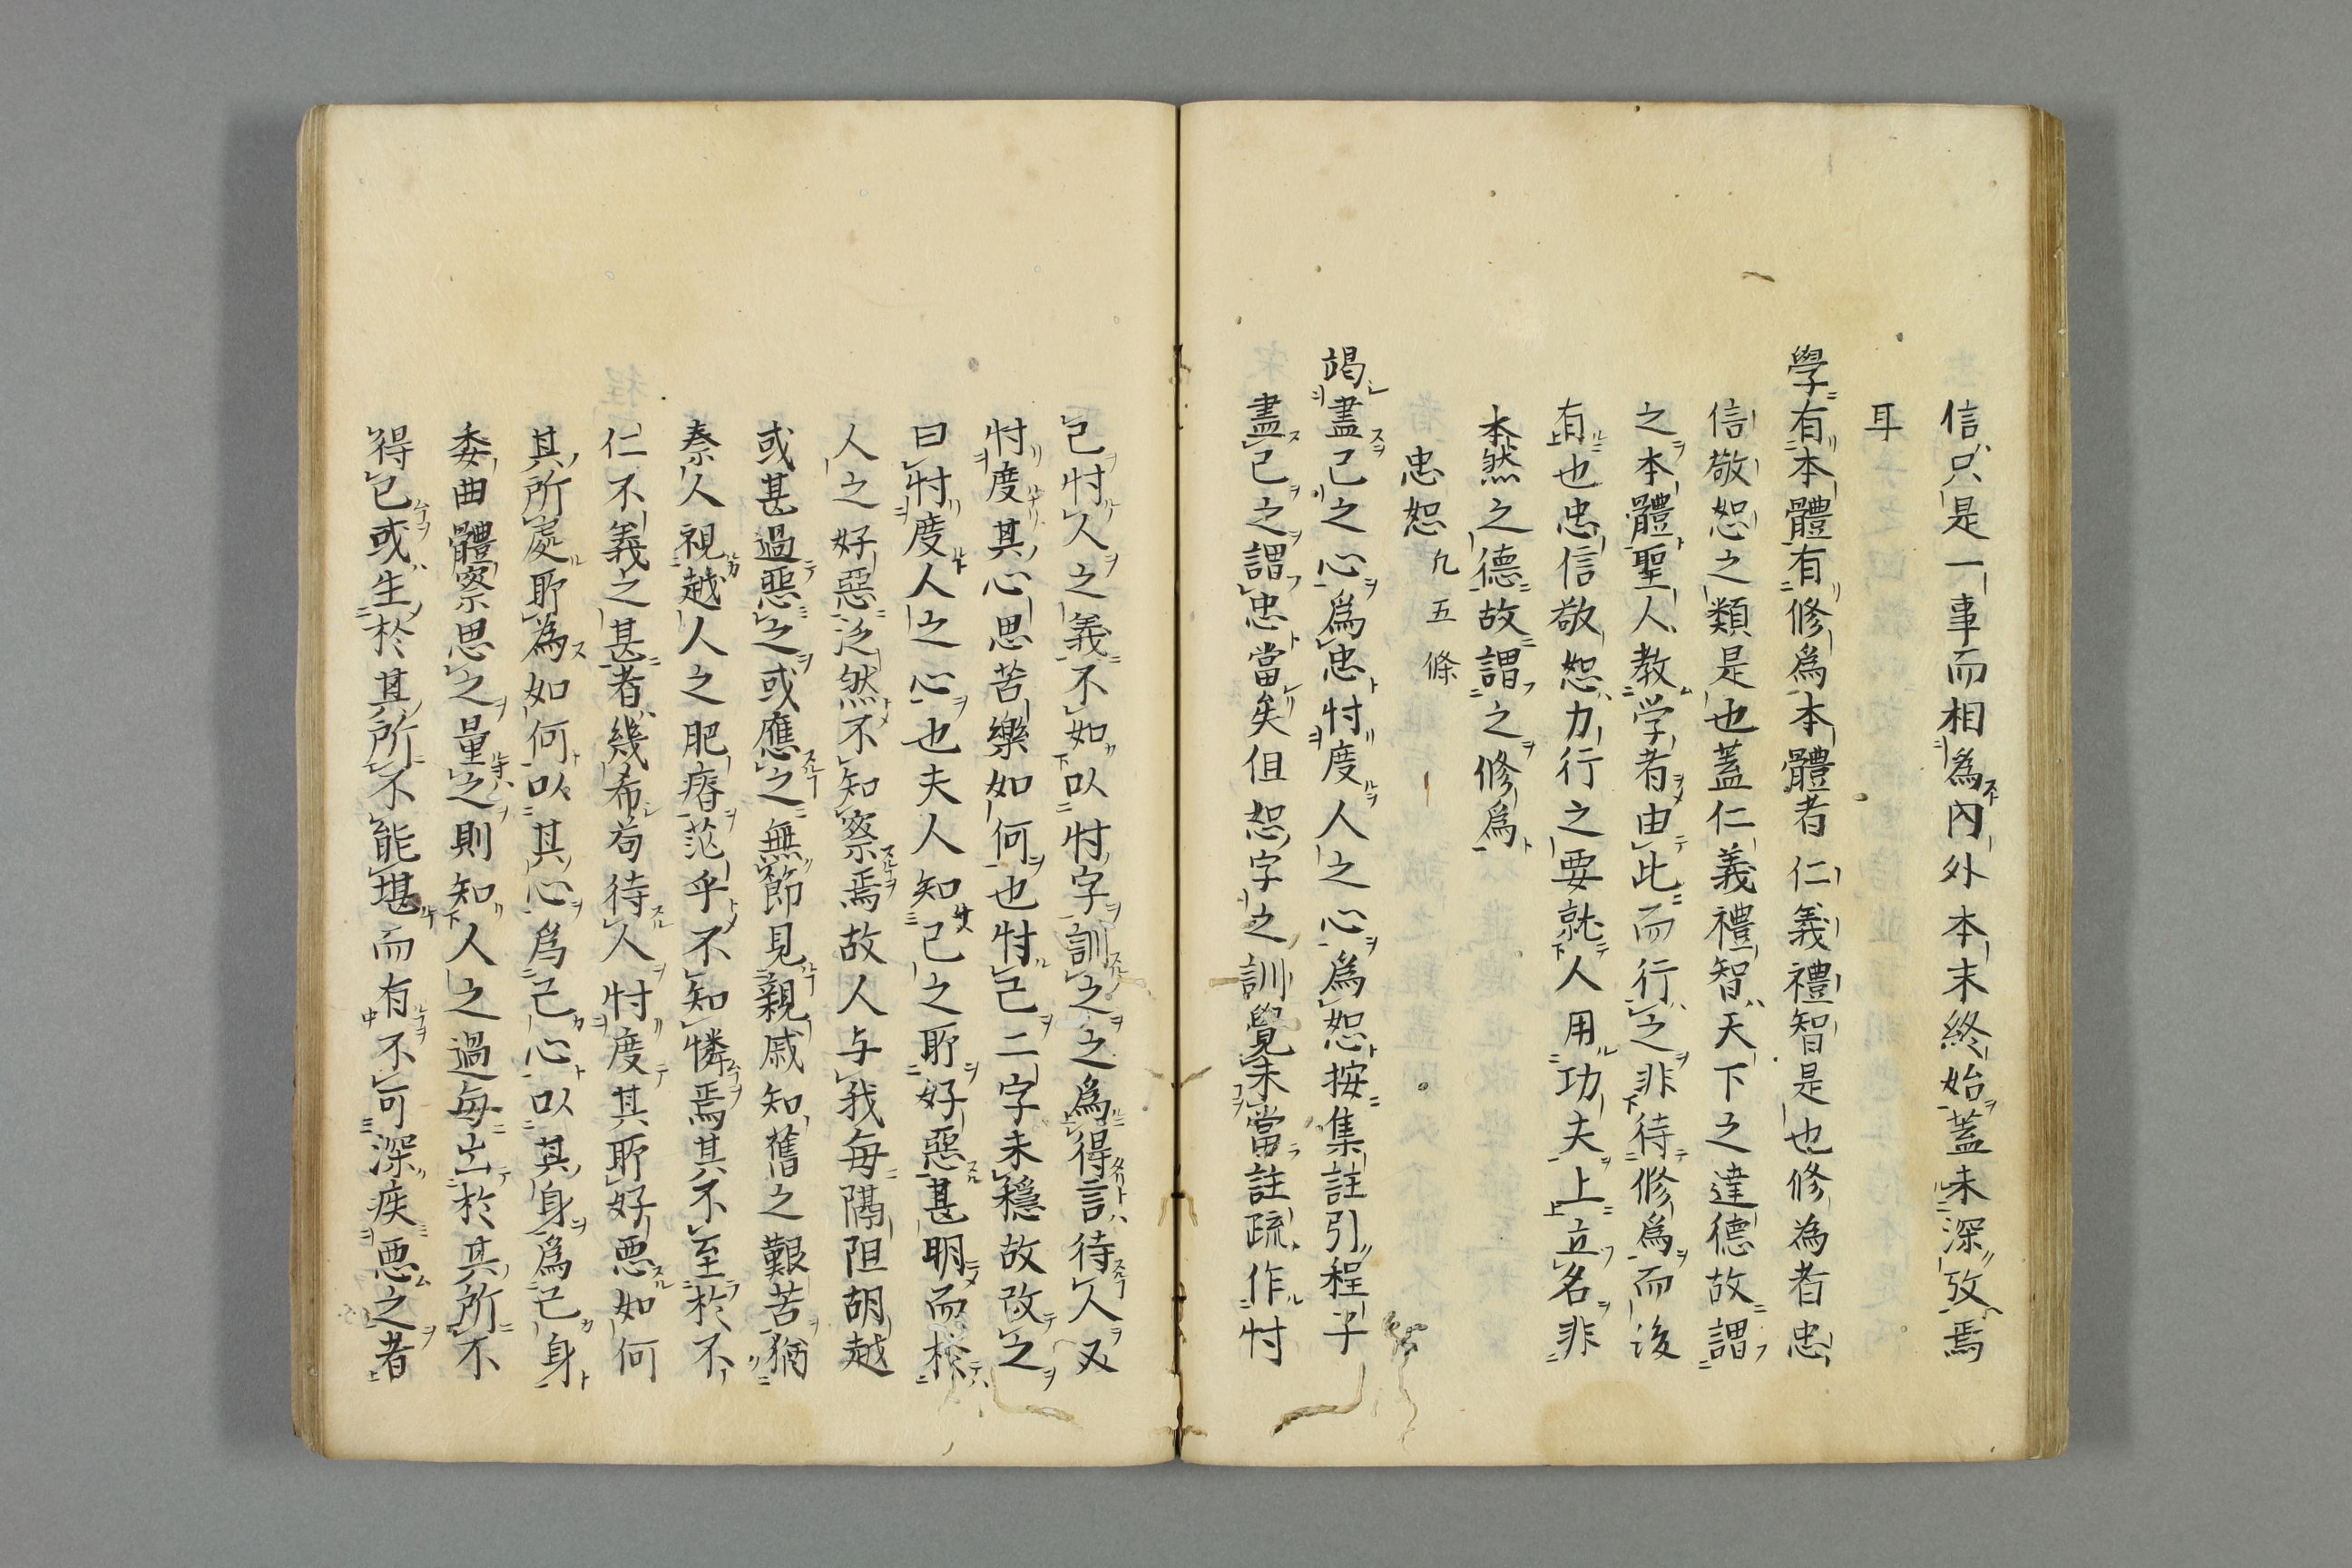 信只是一事而相為内外本末終始蓋未深攷焉
耳
學有本體有修爲本體者仁義禮智是也修為者忠
信敬恕之類是也蓋仁義禮智天下之達德故謂
之本體聖人教学者由此而行之非待修爲而後
有也忠信敬恕力行之要就人用功夫上立名非
本然之德故謂之修爲
忠恕 凢五條
竭盡己之心爲忠忖度人之心爲恕按集註引程子
盡己之謂忠當矣但恕字之訓覺未當註疏作忖
己忖人之義不如以忖字訓之之爲得言待人又
忖度其心思苦樂如何也忖己二字未穩故改之
曰忖度人之心也夫人知己之所好惡甚明而於
人之好惡泛然不知察焉故人与我每隔阻胡越
或甚過惡之或應之無節見親戚知舊之艱苦猶
秦人視越人之肥瘠茫乎不知憐焉其不至於不
仁不義之甚者幾希苟待人忖度其所好悪如何
其所處所為如何以其心爲己心以其身爲己身
委曲體察思之量之則知人之過每出於其所不
得已或生於其所不能堪而有不可深疾悪之者